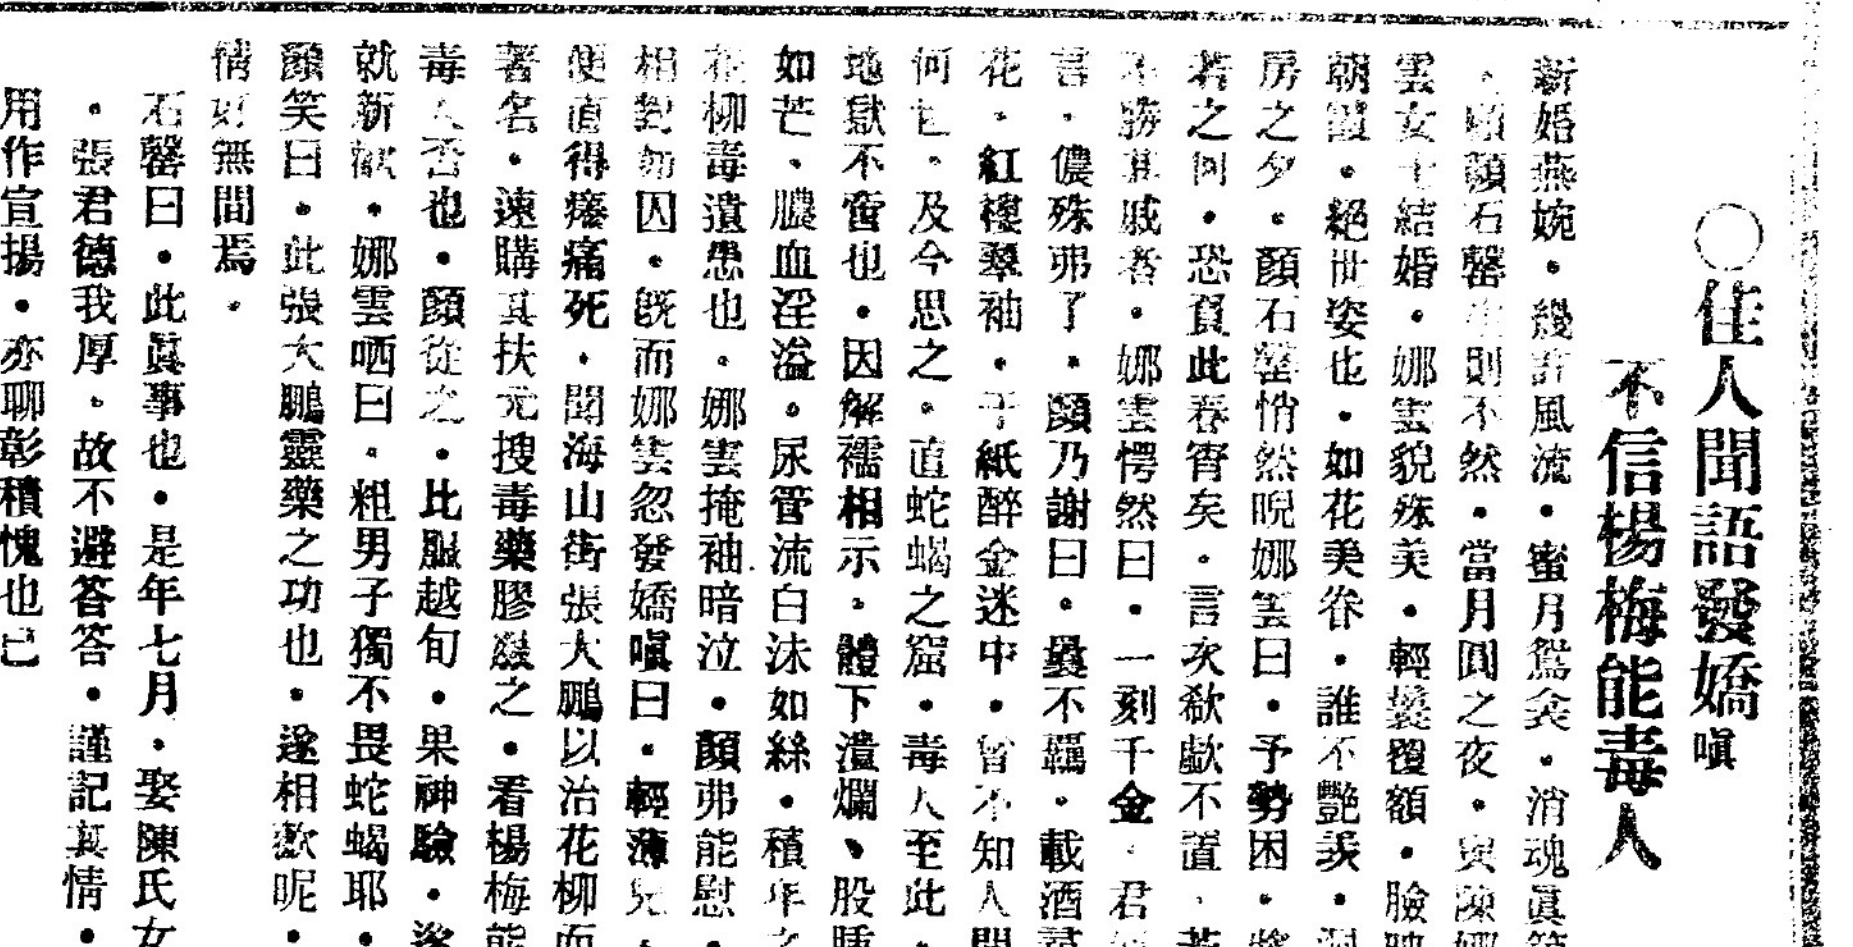 ○佳人聞語發嬌嗔
不信楊梅能毒人
新婚燕婉・幾許風流・蜜月鴛衾・消魂眞箇
・顧顏石罄則不然・當月圓之夜・與陳娜
雲女士結婚・娜雲貌殊美・輕鬟覆額・臉映
朝霞・絕世姿也・如花美眷・誰不艷羨・洞
房之夕・顏石罄悄然睨娜雲曰・予勢困・將
若之何・恐負此春宵矣・言次欷歔不置・若
不勝其戚者・娜雲愕然曰・一刻千金・君
言・儂殊弗了・顏乃謝曰・曩不羈・載酒尋
花・紅樓翠袖・于紙醉金迷中・曾不知人間
何世・及今思之・直蛇蝎之窟・毒人至此・
地獄不啻也・因解襦相示・體下潰爛、股腫
如芒、膿血淫溢・尿管流白沫如絲・積年之
花柳毒遺患也・娜雲掩袖暗泣・顏弗能慰・
相對如囚・旣而娜雲忽發嬌嗔曰・輕薄兒・
便直得癢痛死・聞海山街張大鵬以治花柳而
著名・速購其扶元搜毒藥膠服之・看楊梅能
毒人否也・顏從之・比服越旬・果神驗・遂
就新歡・娜雲哂曰・粗男子獨不畏蛇蝎耶・
顏笑曰・此張大鵬靈藥之功也・遂相歡昵・
情好無間焉・
石罄曰・此眞事也・是年七月・娶陳氏女
・張君德我厚・故不避答答・謹記眞情・
用作宣揚・亦聊彰積愧也已